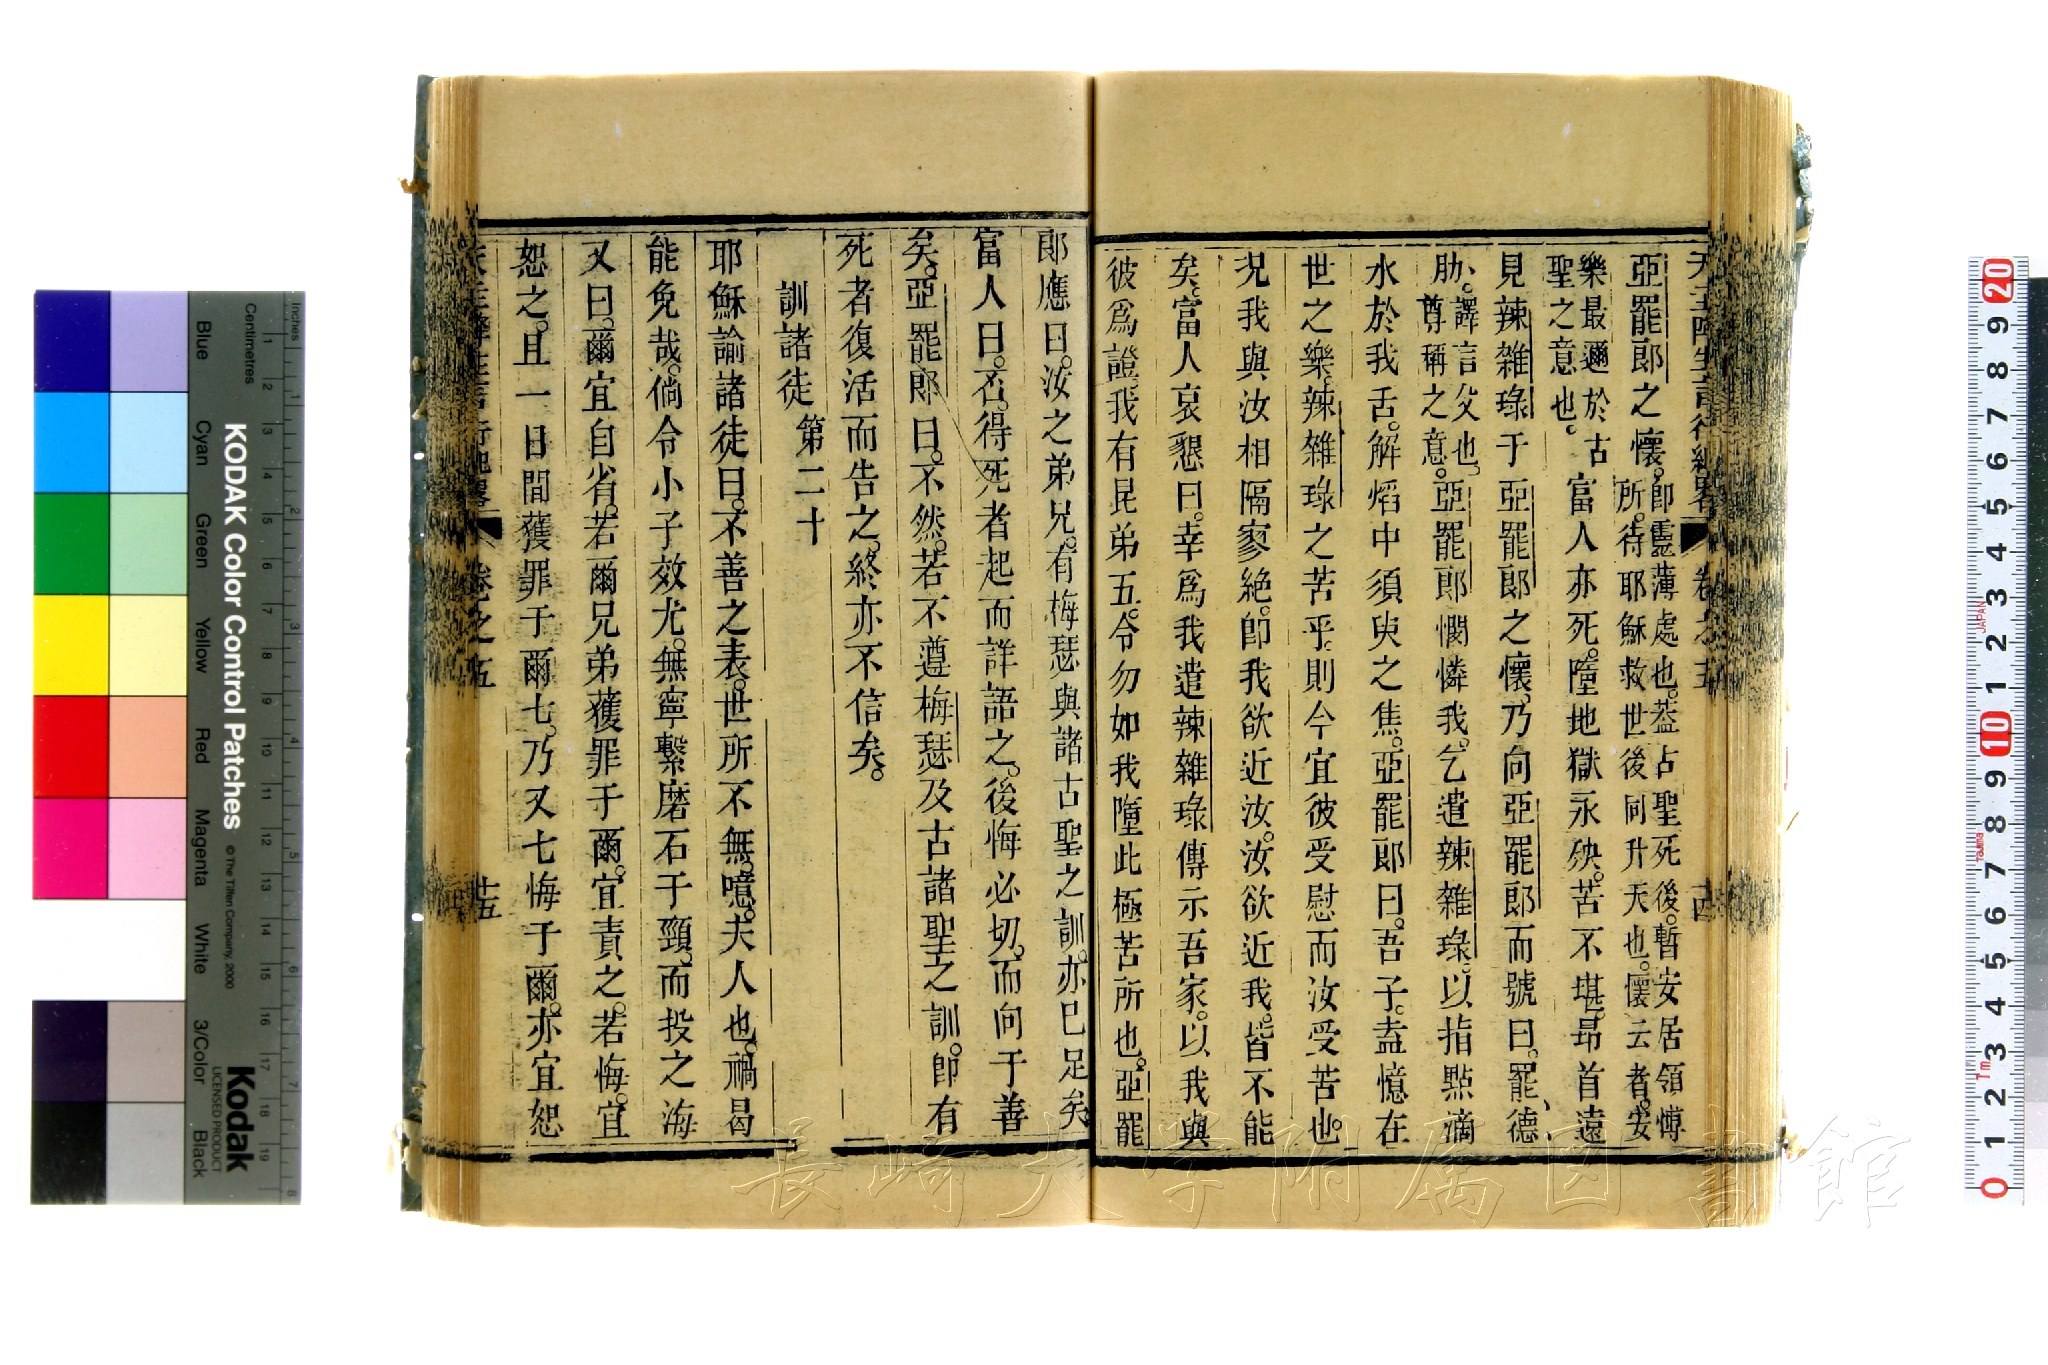 天主降生言行紀畧 卷之五 十四
亞罷郎之懷。即靈薄處也。葢古聖死後。暫安居領慱
所。待耶穌救世後同升天也。懷云者。安
樂最邇於古
聖之意也。富人亦死。墮地獄永殃。苦不堪。昻首遠
見辣雜琭于亞罷郎之懷。乃向亞罷郎而號曰。罷德、
肋、譯言父也。
尊稱之意。亞罷郎憫憐我。乞遣辣雜琭。以指點滴
水於我舌。解熖中須臾之焦。亞罷郎曰。吾子。盍憶在
世之樂。辣雜琭之苦乎。則今宜彼受慰而汝受苦也。
况我與汝相隔寥絶。卽我欲近汝。汝欲近我。皆不能
矣。富人哀懇曰。幸爲我遣辣雜琭傳示吾家。以我與
彼爲證。我有昆弟五。令勿如我墮此極苦所也。亞罷
郎應曰。汝之弟兄。有梅瑟與諸古聖之訓。亦已足矣
富人曰。否。得死者起而詳語之。後悔必切。而向于善
矣。亞罷郎曰。不然。若不遵梅瑟及古諸聖之訓。卽有
死者復活而告之。終亦不信矣。
訓諸徒 第二十
耶穌諭諸徒曰。不善之表。世所不無。噫。夫人也。禍曷
能免哉。倘令小子效尤。無寧繫磨石于頸。而投之海
又曰。爾宜自省。若爾兄弟獲罪于爾。宜責之。若悔。宜
恕之。且一日間獲罪于爾七。乃又七悔于爾。亦宜恕
天主降生言行紀畧 卷之五 十五
KODAK Color Control Patches
© The Tiffen Company, 2000
Kodak
LICENSED PRODUCT
Inches
Centimetres
Blue
Cyan
Green
Yellow
Red
Magenta
White
3/Color
Black
長崎大学附属図書館